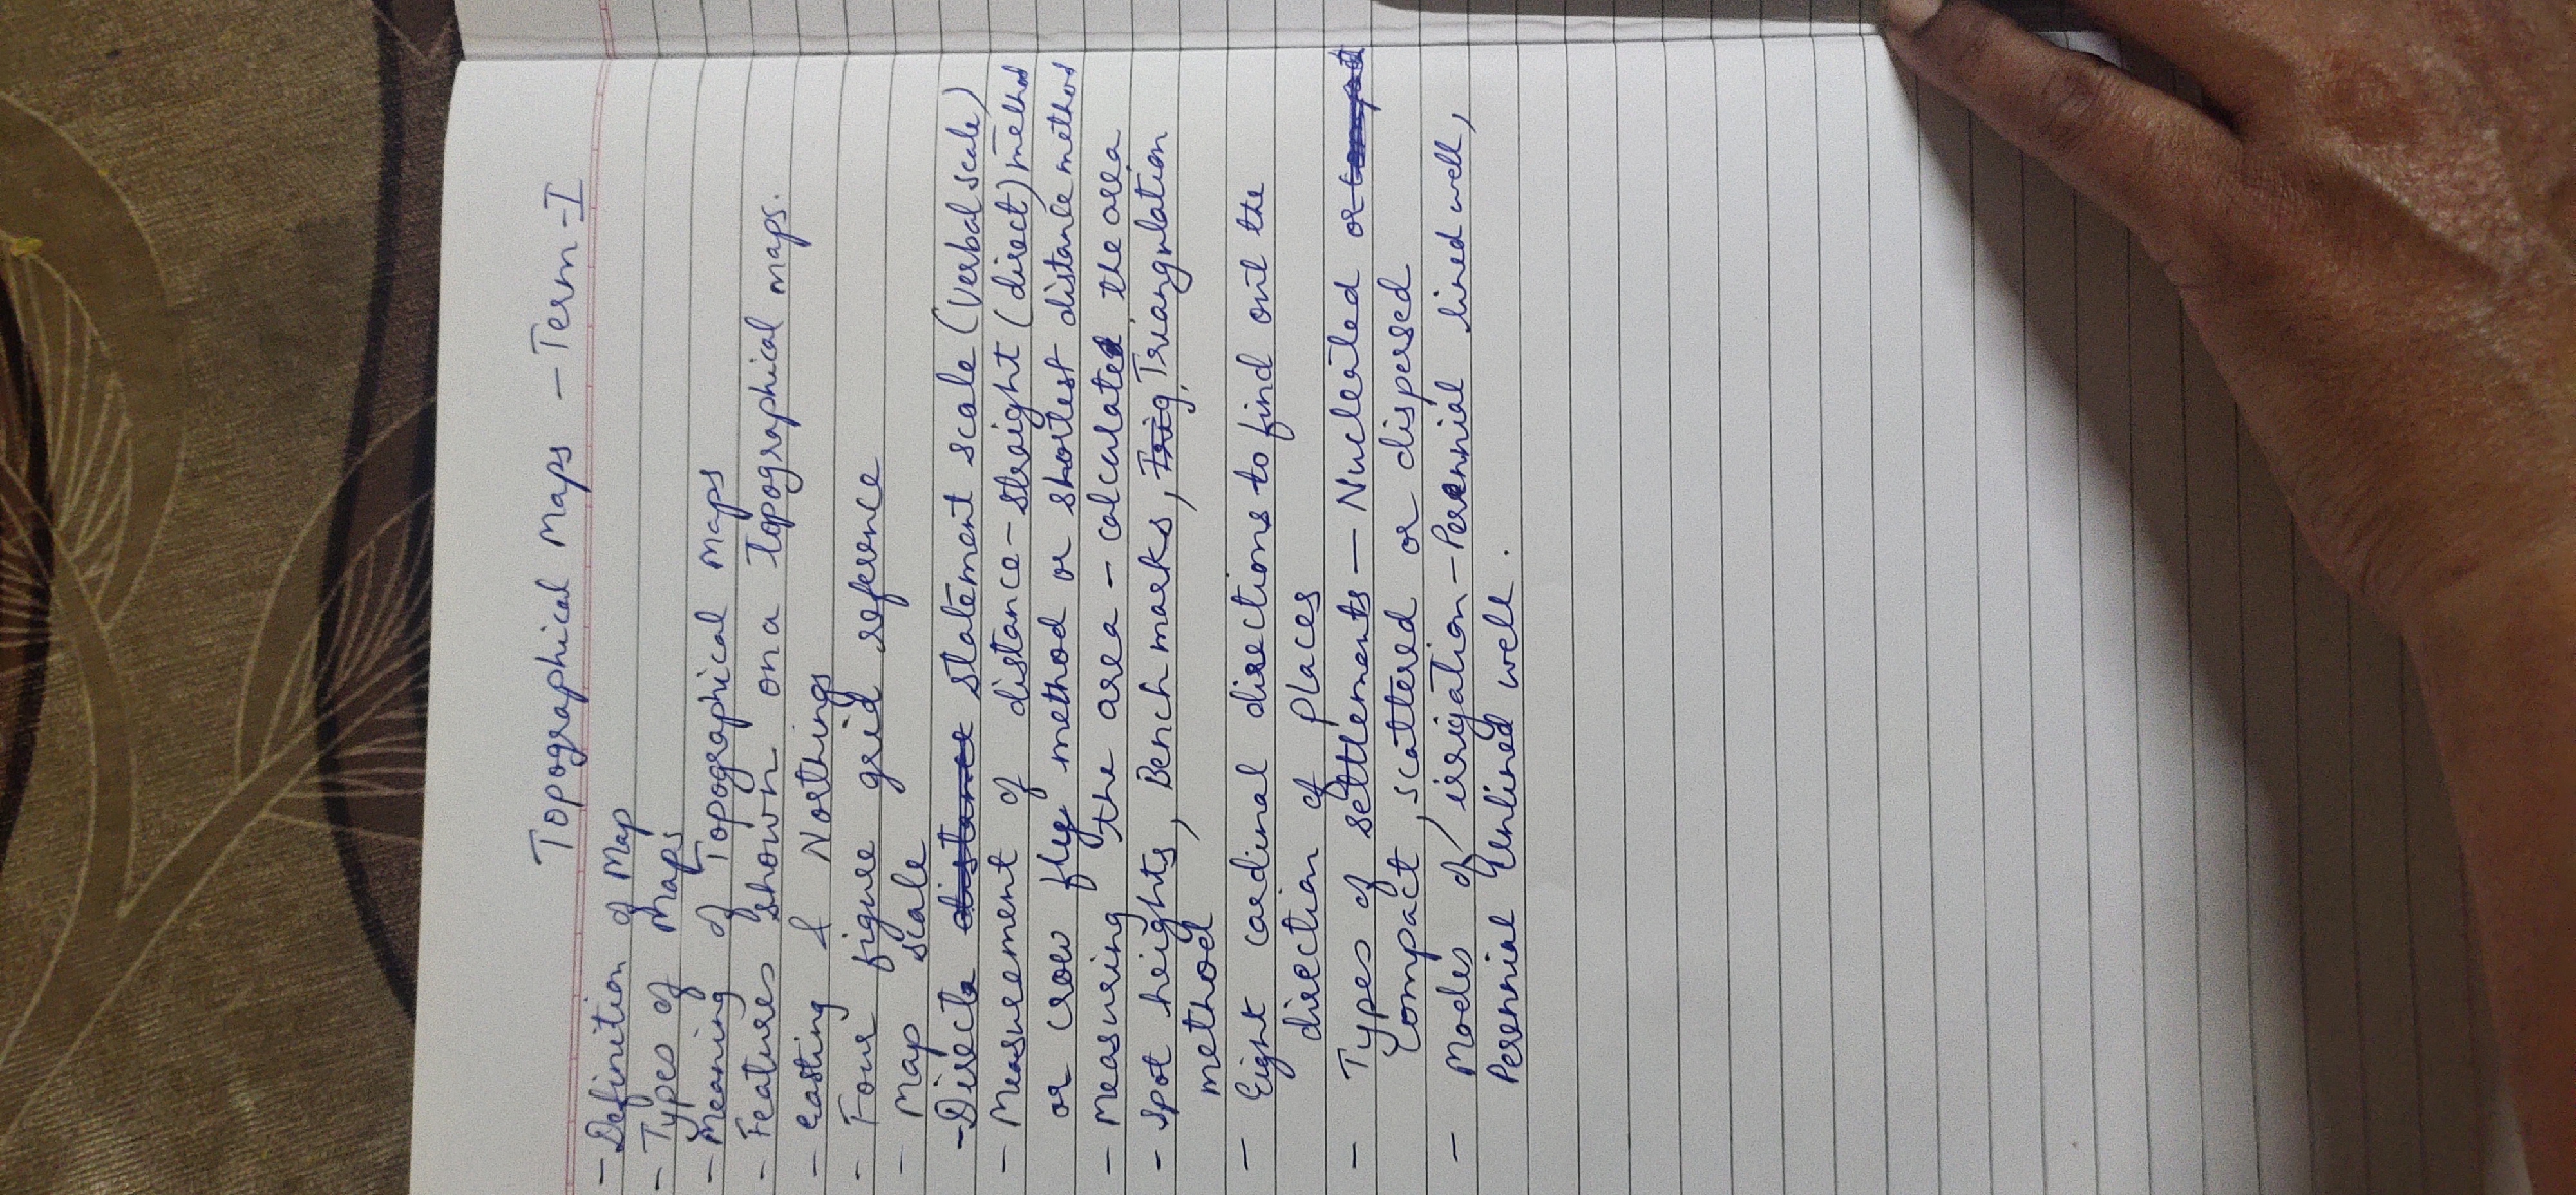 Topographical Maps - Term - I
- Definition of Map
- Types of Maps
- Meaning of Topographical Maps
- Features shown on a Topographical maps.
- easting & Northings
- Four figure grid reference
- Map scale
- Direct distance statement scale (Verbal scale)
- Measurement of distance - straight (direct) method
or crow fly method or shortest distance method
- Measuring the area - calculated the area
- spot heights, Bench marks, Trig, Triangulation
method
- Eight cardinal directions to find out the
direction of places
- Types of settlements - Nucleated or
Compact, scattered or dispersed
- Modes of irrigation - Perennial lined well,
Perennial Unlined well.